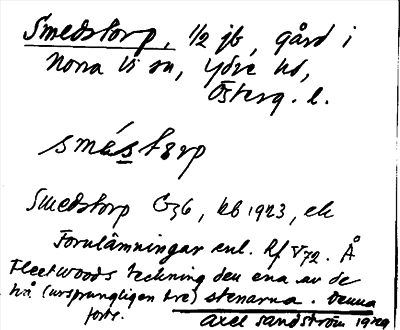 Smedstorp, 1/2 jb, gård i
Norra Vi sn, Ydre hd,
Österg. l.
smástɜrp
Smedstorp G36, kb 1923, ek
Fornlämningar enl. Rf V72. Å
Fleetwoods teckning den ena av de
två (ursprungligen tre) stenarna. Denna
forts. Axel Sandström 1929